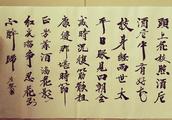 頭上花枝照酒卮
酒卮中有好花
枝身經兩世太
平日眼見四朝全
盛時況復筋骸粗
康健那堪時節
正芳菲酒涵花影
紅光溜爭忍花前
不醉歸